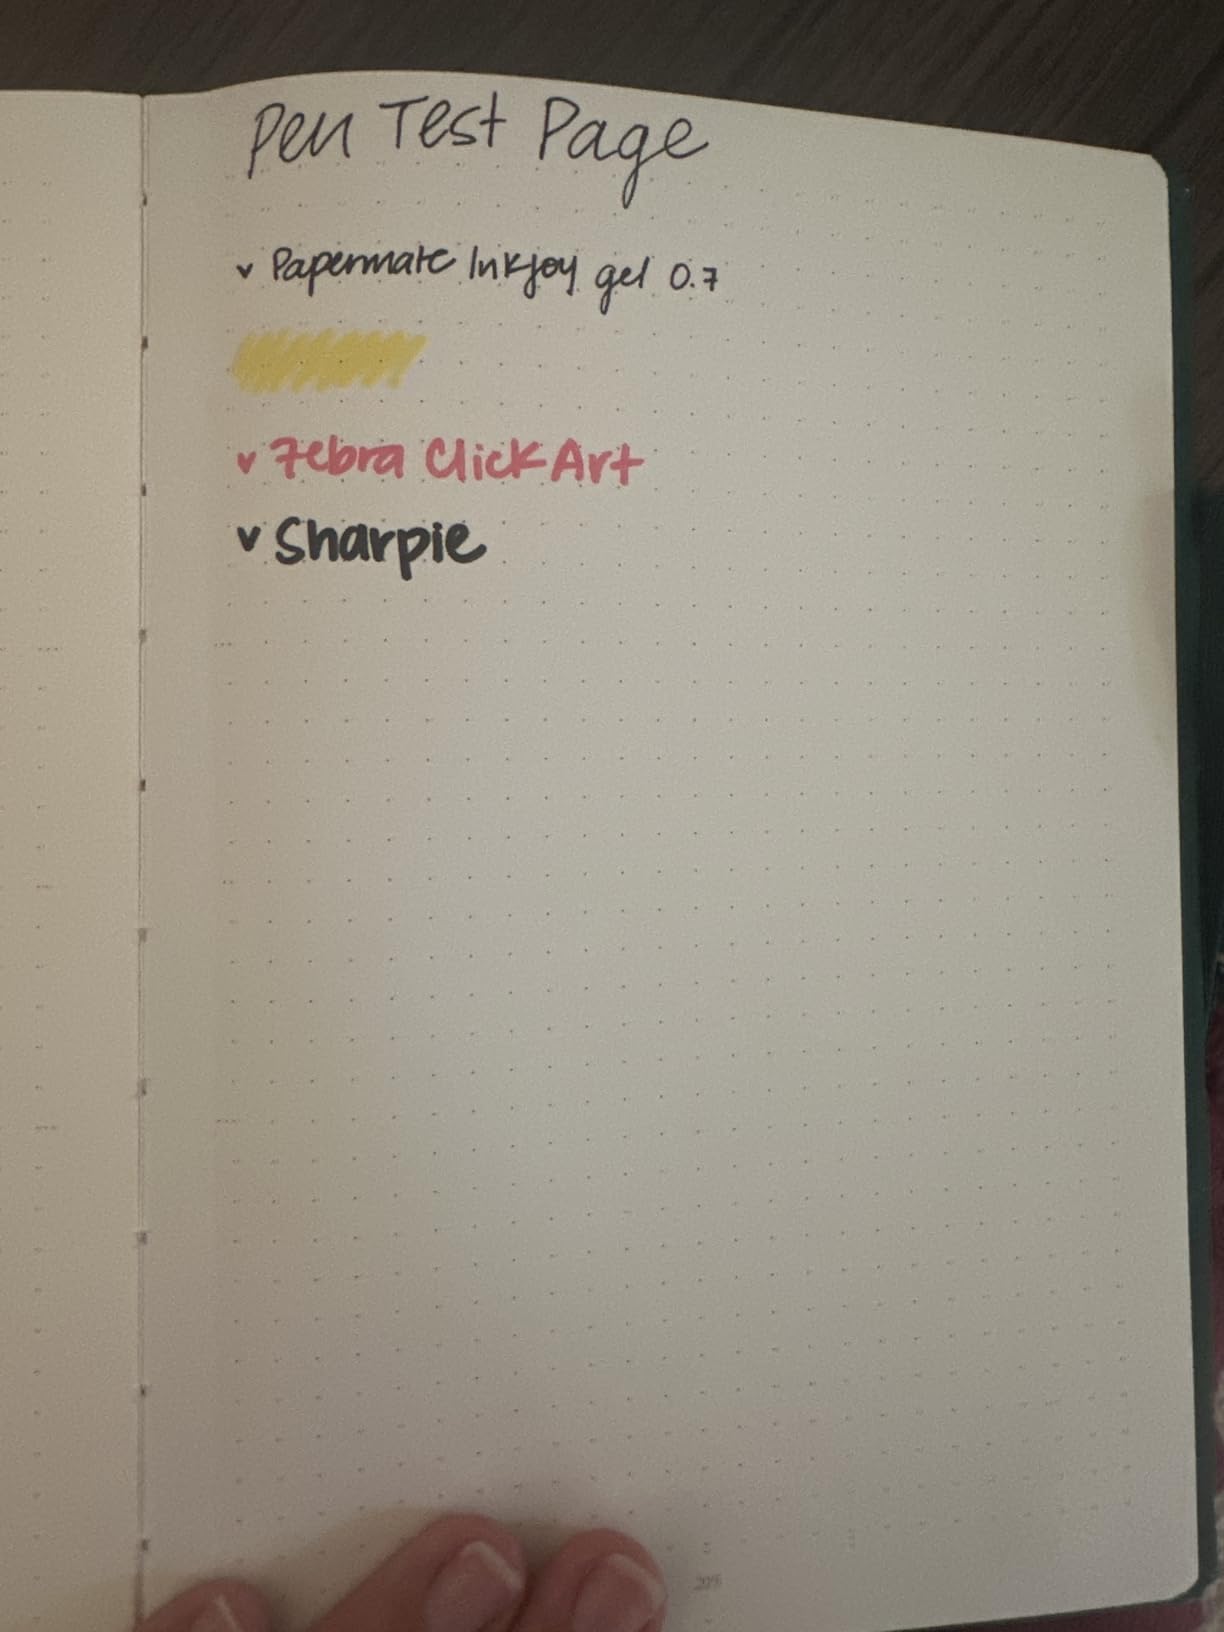 Pen Test Page
v Papermate Inkjoy gel 0.7
v Zebra ClickArt
v Sharpie